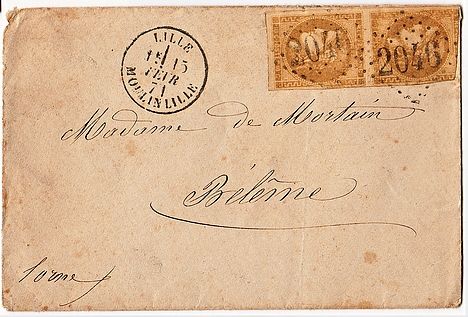 LILLE
15
FEVR
71
MOULIN LILLE
2046
2046
Madame de Mortain
Bélême
(orne)